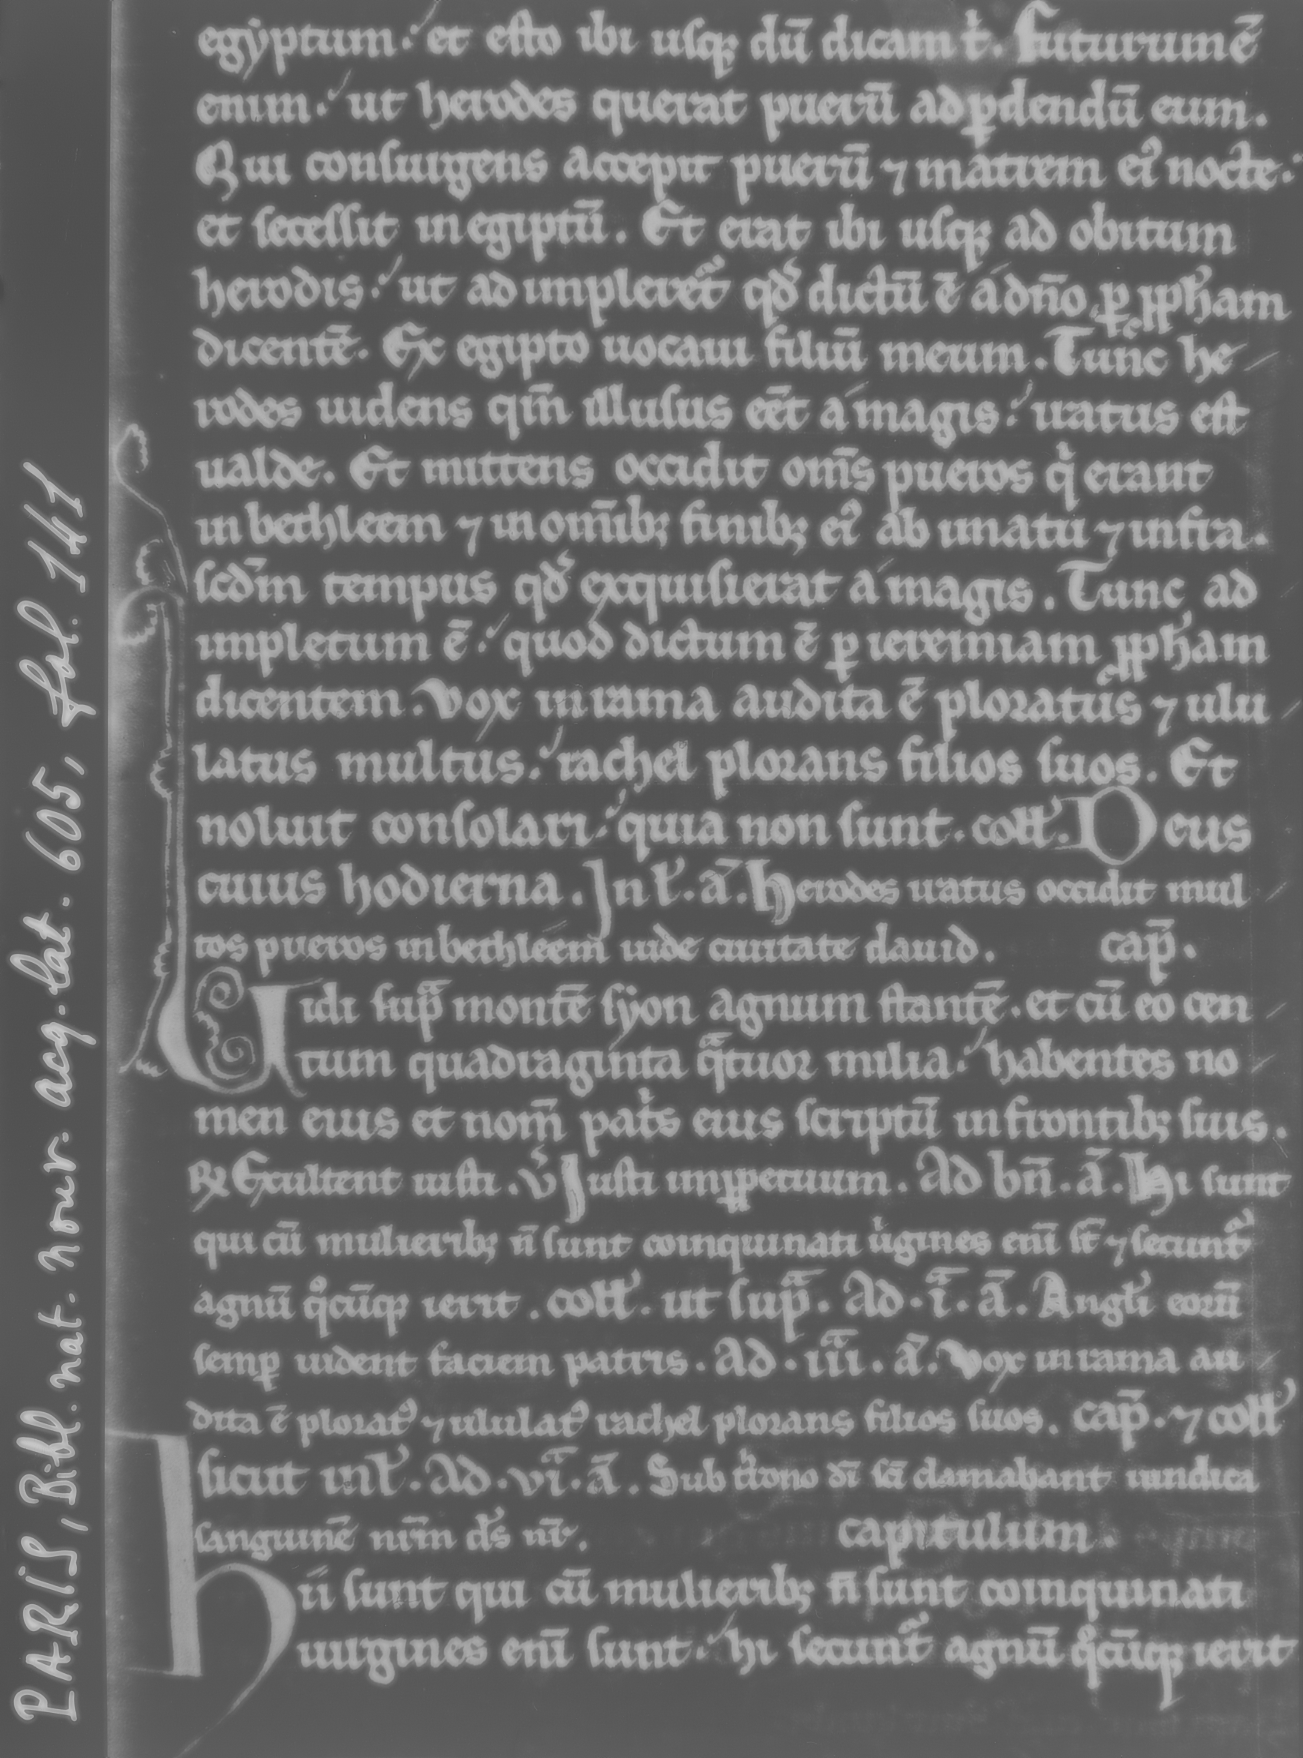 egẏptum. et esto ibi usq; dū dicam t̉. Futurum ē
enim. ut herodes querat puerū ad ꝑdendū eum.
Qui consurgens accepit puerū ⁊ matrem ei⁹ nocte.
et secessit in egiptū. Et erat ibi usq; ad obitum
herodis. ut ad impleret᷑ qd̕ dictū ē a dn̄o ꝑ ꝓpħam
dicentē. Ex egipto uocaui filiū meum. Tunc he
rodes uidens qm̄ illusus eēt a magis. iratus est
ualde. Et mittens occidit om̄s pueros q̇ erant
in bethleem ⁊ in om̄ib; finib; ei⁹ ab imatu ⁊ infra.
scd̄m tempus qd̕ exquisierat a magis. Tunc ad
impletum ē. quod dictum ē ꝑ ieremiam ꝓpħam
dicentem. Vox in rama audita ē ploratus ⁊ ulu
latus multus. rachel plorans filios suos. Et
noluit consolari. quia non sunt. coll̕. Deus
cuius hodierna. In l̕. ā. Herodes iratus occidit mul
tos pueros in bethleem iude ciuitate dauid. cap̄.
Uidi sup̄ montē sẏon agnum stantē. et cū eo cen
tum quadraginta q̄tuor milia. habentes no
men eius et nom̄ pat̉s eius scriptū in frontib; suis.
℟ Exultent iusti. v̕ Iusti inꝑpetuum. Ad bn̄. ā. Hi sunt
qui cū mulierib; n̄ sunt coinquinati u̇gines eni̅ st̄ ⁊ secunt᷑
agnū q̊cūq; ierit. coll̕. ut sup̄. Ad. i̅. ā. Angl̕i eorū
semꝑ uident faciem patris. Ad. iii̅. ā. Vox in rama au
dita ē plorat⁹ ⁊ ululat⁹ rachel plorans filios suos. cap̄. ⁊ coll̕
sicut in l̕. Ad. vi̅. ā. Sub t̉rono dī sc̄i clamabant uindica
sanguinē nr̄m ds̄ nr̄. capitulum.
Hii sunt qui cū mulierib; n̄ sunt coinquinati
uirgines eni̅ sunt. hi secunt᷑ agnū q̊cūq; ierit
PARIS, Bibl. nat. nouv. acq. lat. 605, fol. 141